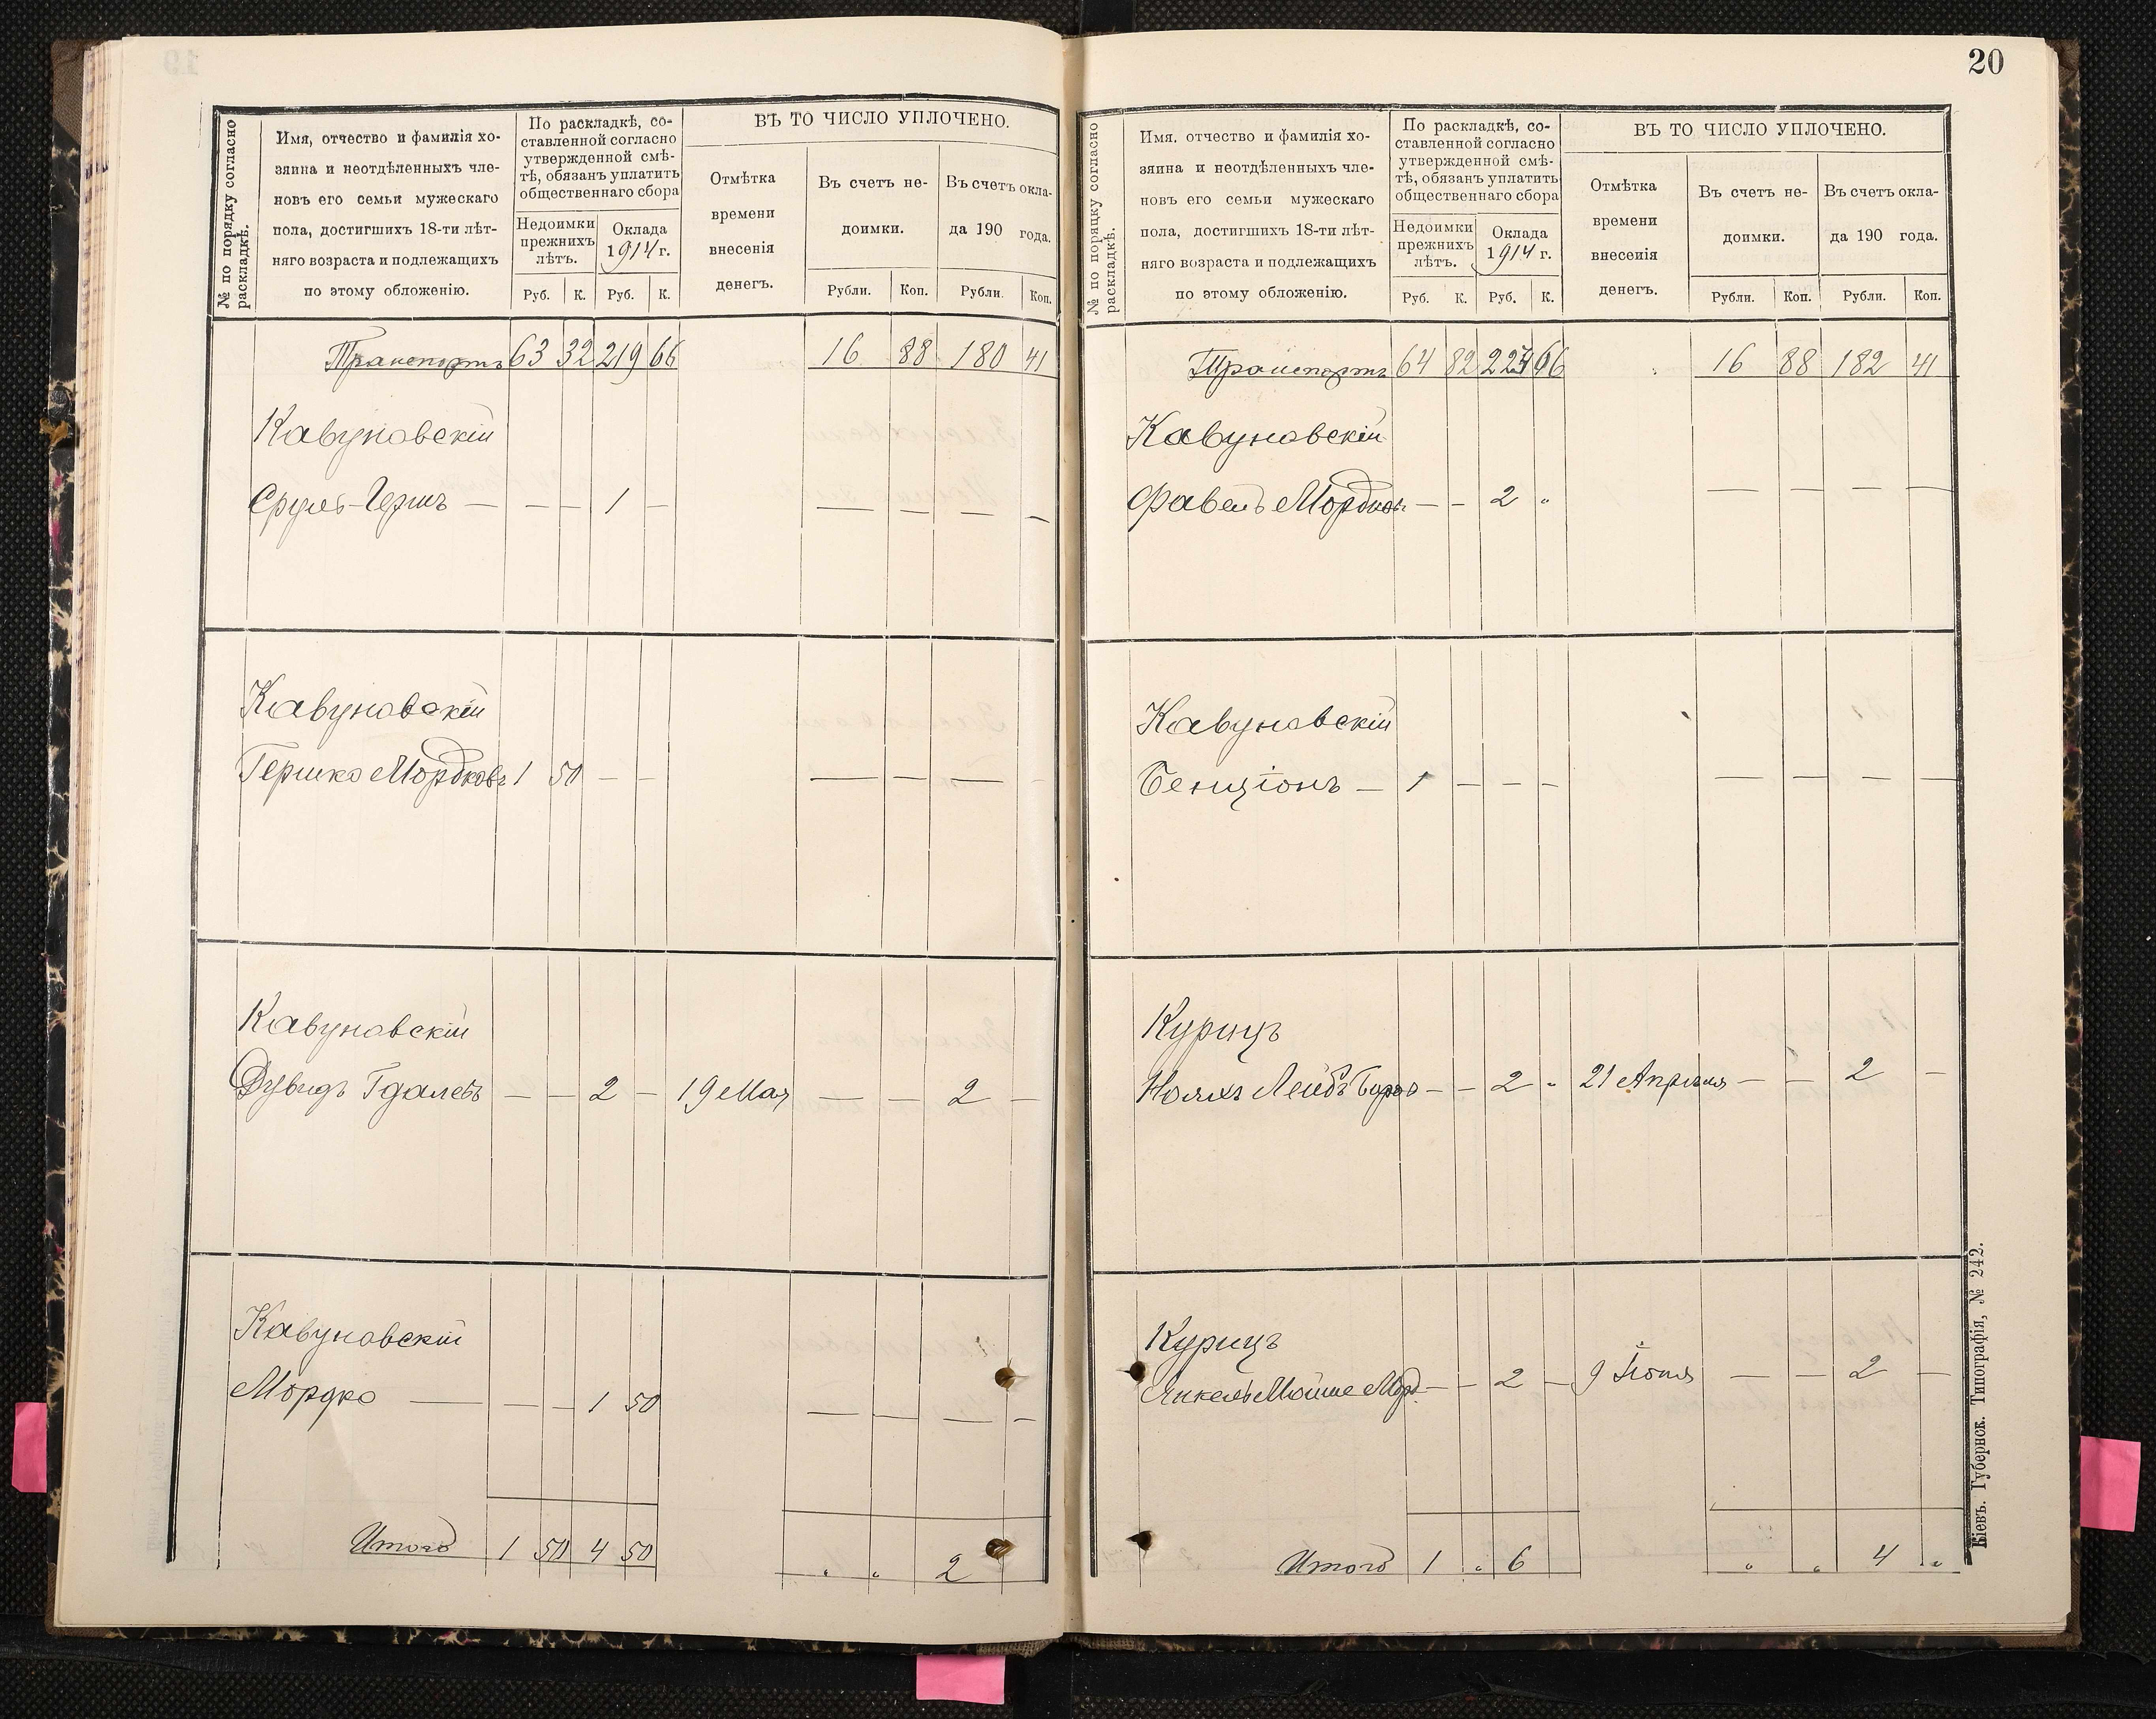 № по порядку согласно раскладкѣ.
Имя, отчество и фамилія хо-
зяина и неотдѣленныхъ чле-
новъ его семьи мужескаго
пола, достигшихъ 18-ти лѣт-
няго возраста и подлежащихъ
по этому обложенію.
По раскладкѣ, со-
ставленной согласно
утвержденной смѣ-
тѣ, обязанъ уплатить
общественнаго сбора
Недоимки
прежнихъ
лѣтъ.
Оклада
1914 г.
Руб. К. Руб. К.
ВЪ ТО ЧИСЛО УПЛОЧЕНО.
Отмѣтка
времени
внесенія
денегъ.
Въ счетъ не-
доимки.
Въ счетъ окла-
да 190 года.
Рубли. Коп. Рубли. Коп.
Транспортъ 63 32 219 66 16 88 180 41
Кавуновскій
Сруль-Гершъ — — — 1 — — — — —
Кавуновскій
Гершко Мордковъ 1 50 — — — — —
Кавуновскій
Дувидъ Гдалевъ — — 2 — 19 Мая — — 2 —
Кавуновскій
Мордко — — — 1 50 — — — —
Итого 1 50 4 50 " " 2
20
№ по порядку согласно раскладкѣ.
Имя, отчество и фамилія хо-
зяина и неотдѣленныхъ чле-
новъ его семьи мужескаго
пола, достигшихъ 18-ти лѣт-
няго возраста и подлежащихъ
по этому обложенію.
По раскладкѣ, со-
ставленной согласно
утвержденной смѣ-
тѣ, обязанъ уплатить
общественнаго сбора
Недоимки
прежнихъ
лѣтъ.
Оклада
1914 г.
Руб. К. Руб. К.
ВЪ ТО ЧИСЛО УПЛОЧЕНО.
Отмѣтка
времени
внесенія
денегъ.
Въ счетъ не-
доимки.
Въ счетъ окла-
да 190 года.
Рубли. Коп. Рубли. Коп.
Транспортъ 64 82 224 66 16 88 182 41
Кавуновскій
Фавель Мордков — — 2 " — — — —
Кавуновскій
Бенціонъ — 1 — — — — — — —
Курицъ
Лейбъ — — 2 " 21 Апрѣля — — 2 —
Курицъ
Янкель Мойше Морд. — — 2 — 9 Іюня — — 2 —
Итого 1 " 6 " " 4 "
Кіевъ. Губернск. Типографія, № 242.